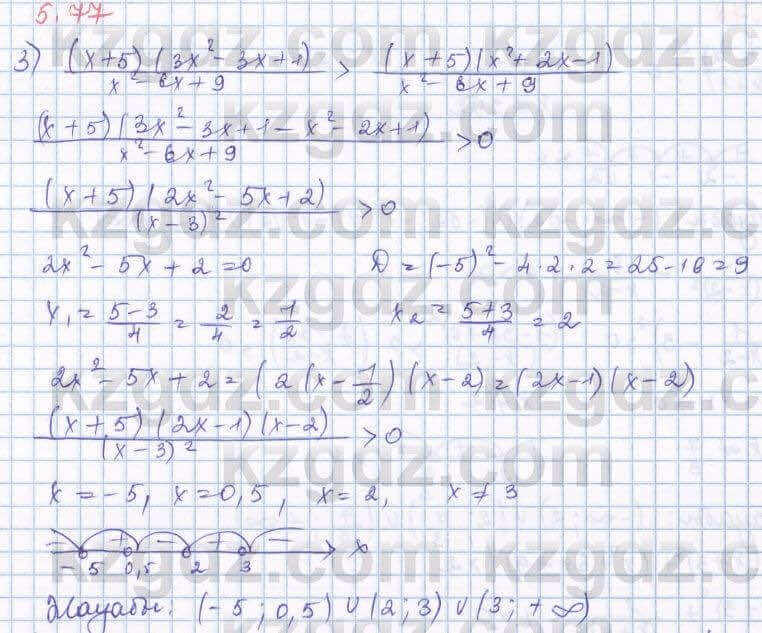 5.77
3) (x+5)(3x²-3x+1)/x²-6x+9 > (x+5)(x²+2x-1)/x²-6x+9
(x+5)(3x²-3x+1-x²-2x+1)/x²-6x+9 >0
(x+5)(2x²-5x+2)/(x-3)² >0
2x²-5x+2=0 D=(-5)²-4·2·2=25-16=9
x₁=5-3/4=2/4=1/2 x₂=5+3/4=2
2x²-5x+2=(2(x-1/2)(x-2)=(2x-1)(x-2)
(x+5)(2x-1)(x-2)/(x-3)² >0
x=-5, x=0,5, x=2, x≠3
- + - + - x
-5 0,5 2 3
Жауабы: (-5; 0,5) ∪ (2; 3) ∪ (3; +∞)
kzgdz.com